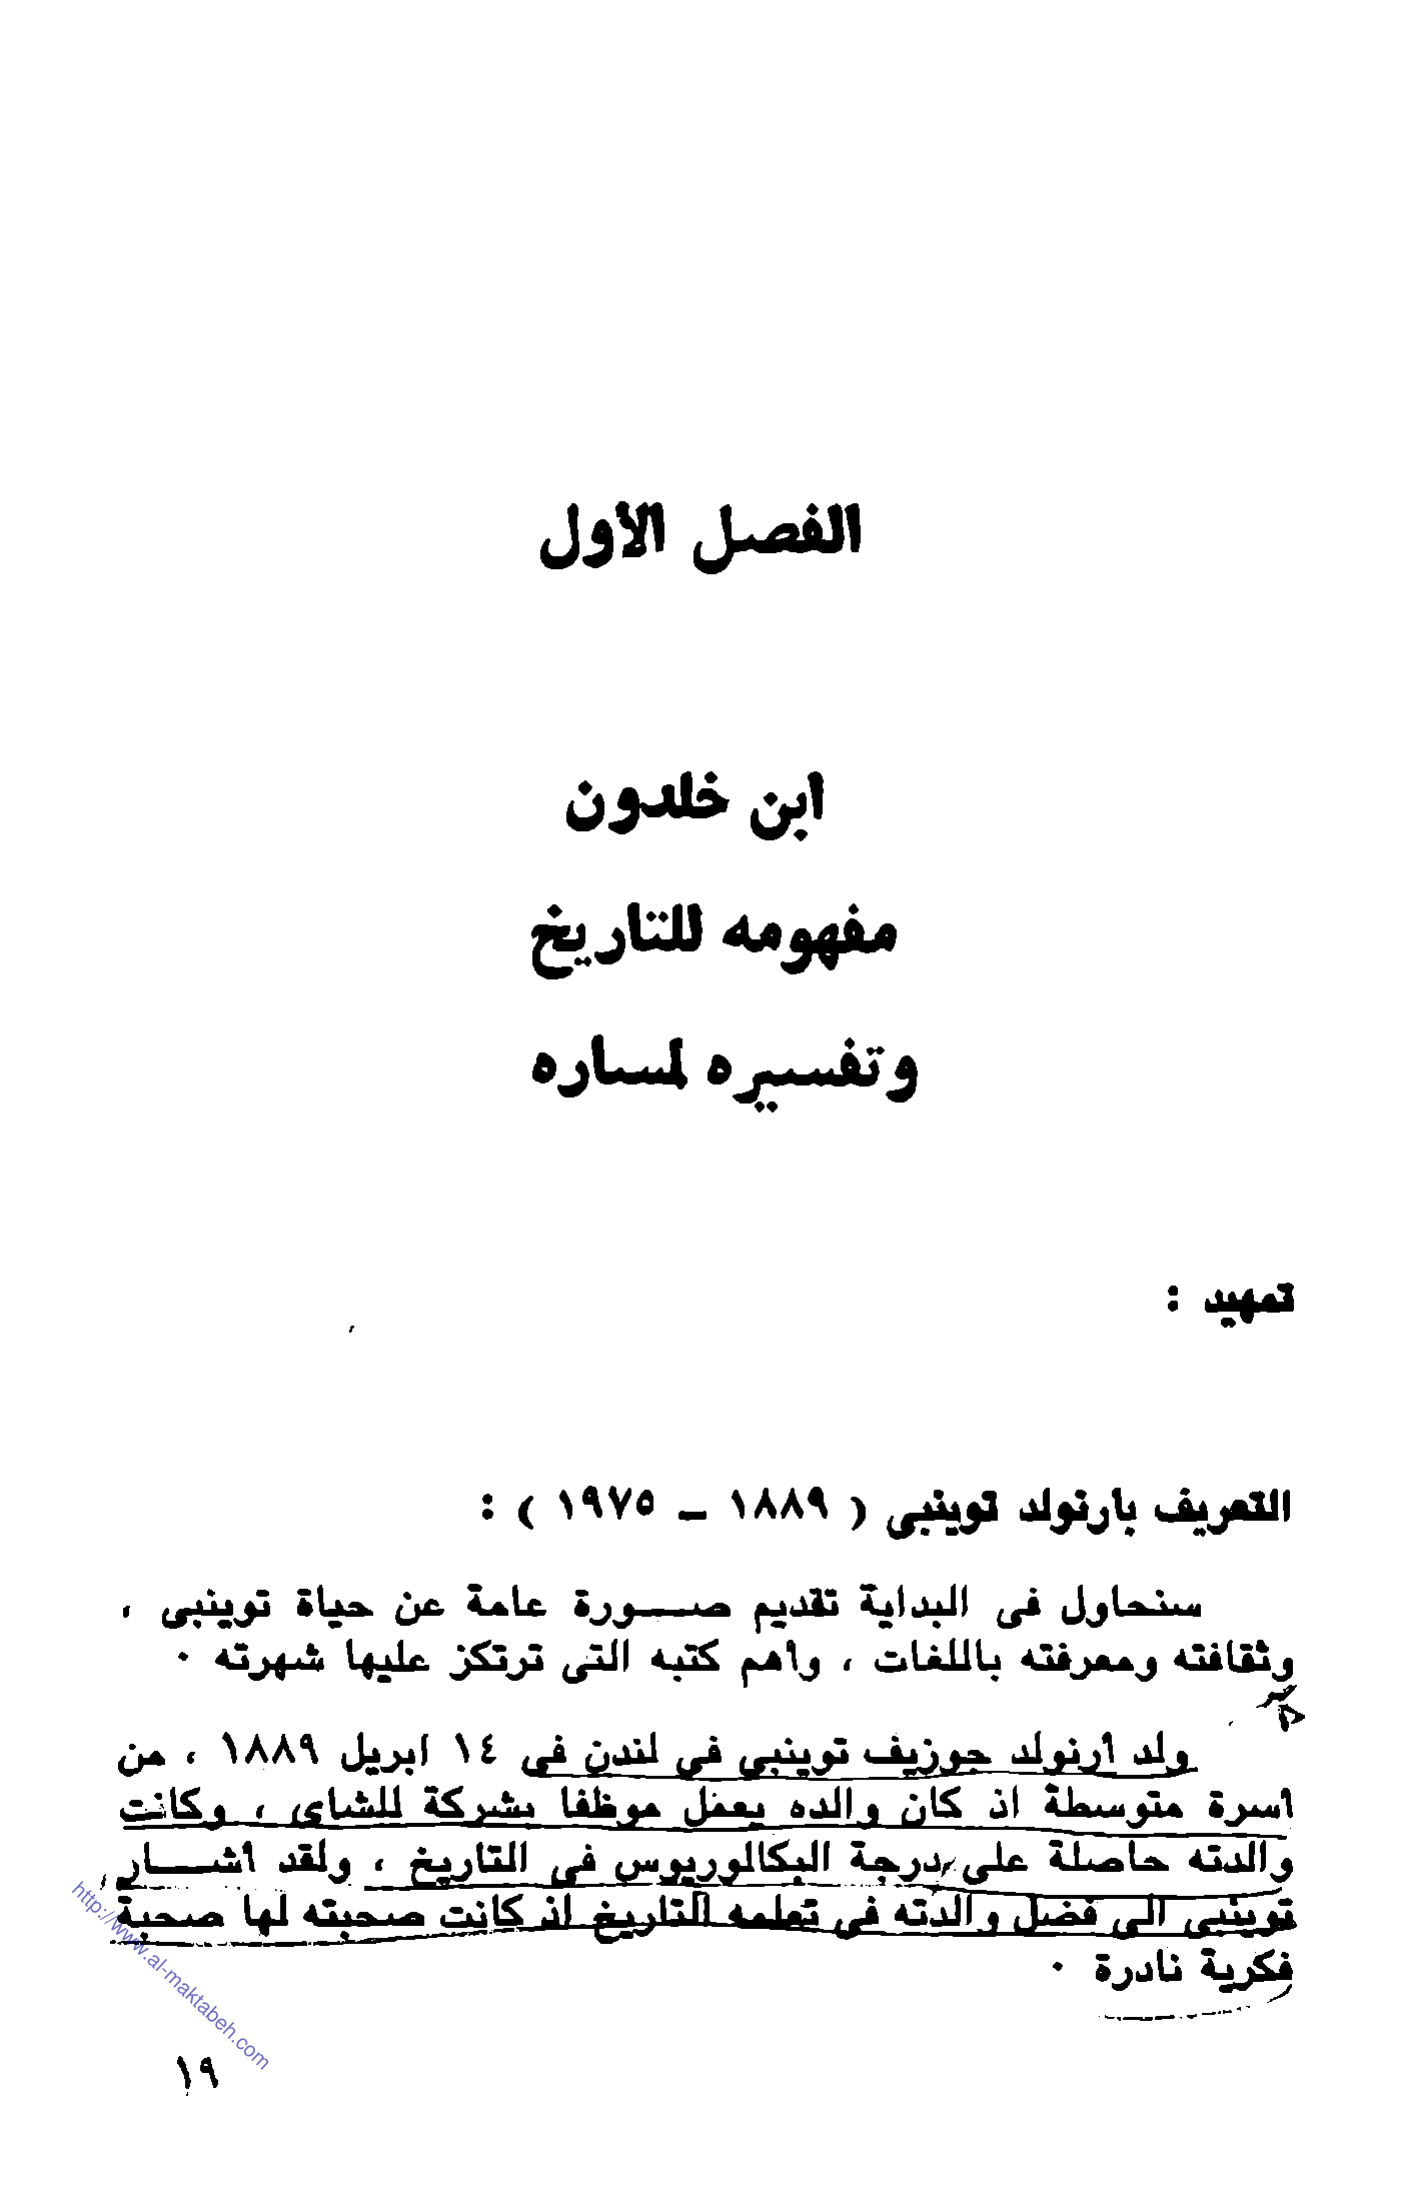 الفصل الأول
ابن خلدون
مفهومه للتاريخ
وتفسيره لمساره
تمهيد :
التعريف بارنولد توينبى ( ١٨٨٩ ـ ١٩٧٥ ) :
سنحاول فى البداية تقديم صـــورة عامة عن حياة توينبى ،
وثقافته ومعرفته باللغات ، وأهم كتبه التى ترتكز عليها شهرته ٠
ولد أرنولد جوزيف توينبى فى لندن فى ١٤ ابريل ١٨٨٩ ، من
أسرة متوسطة اذ كان والده يعمل موظفا بشركة للشاى ، وكانت
والدته حاصلة على درجة البكالوريوس فى التاريخ ، ولقد أشـــار
توينبى الى فضل والدته فى تعلمه التاريخ اذ كانت صحبته لها صحبة
فكرية نادرة ٠
http://www.al-maktabeh.com
١٩